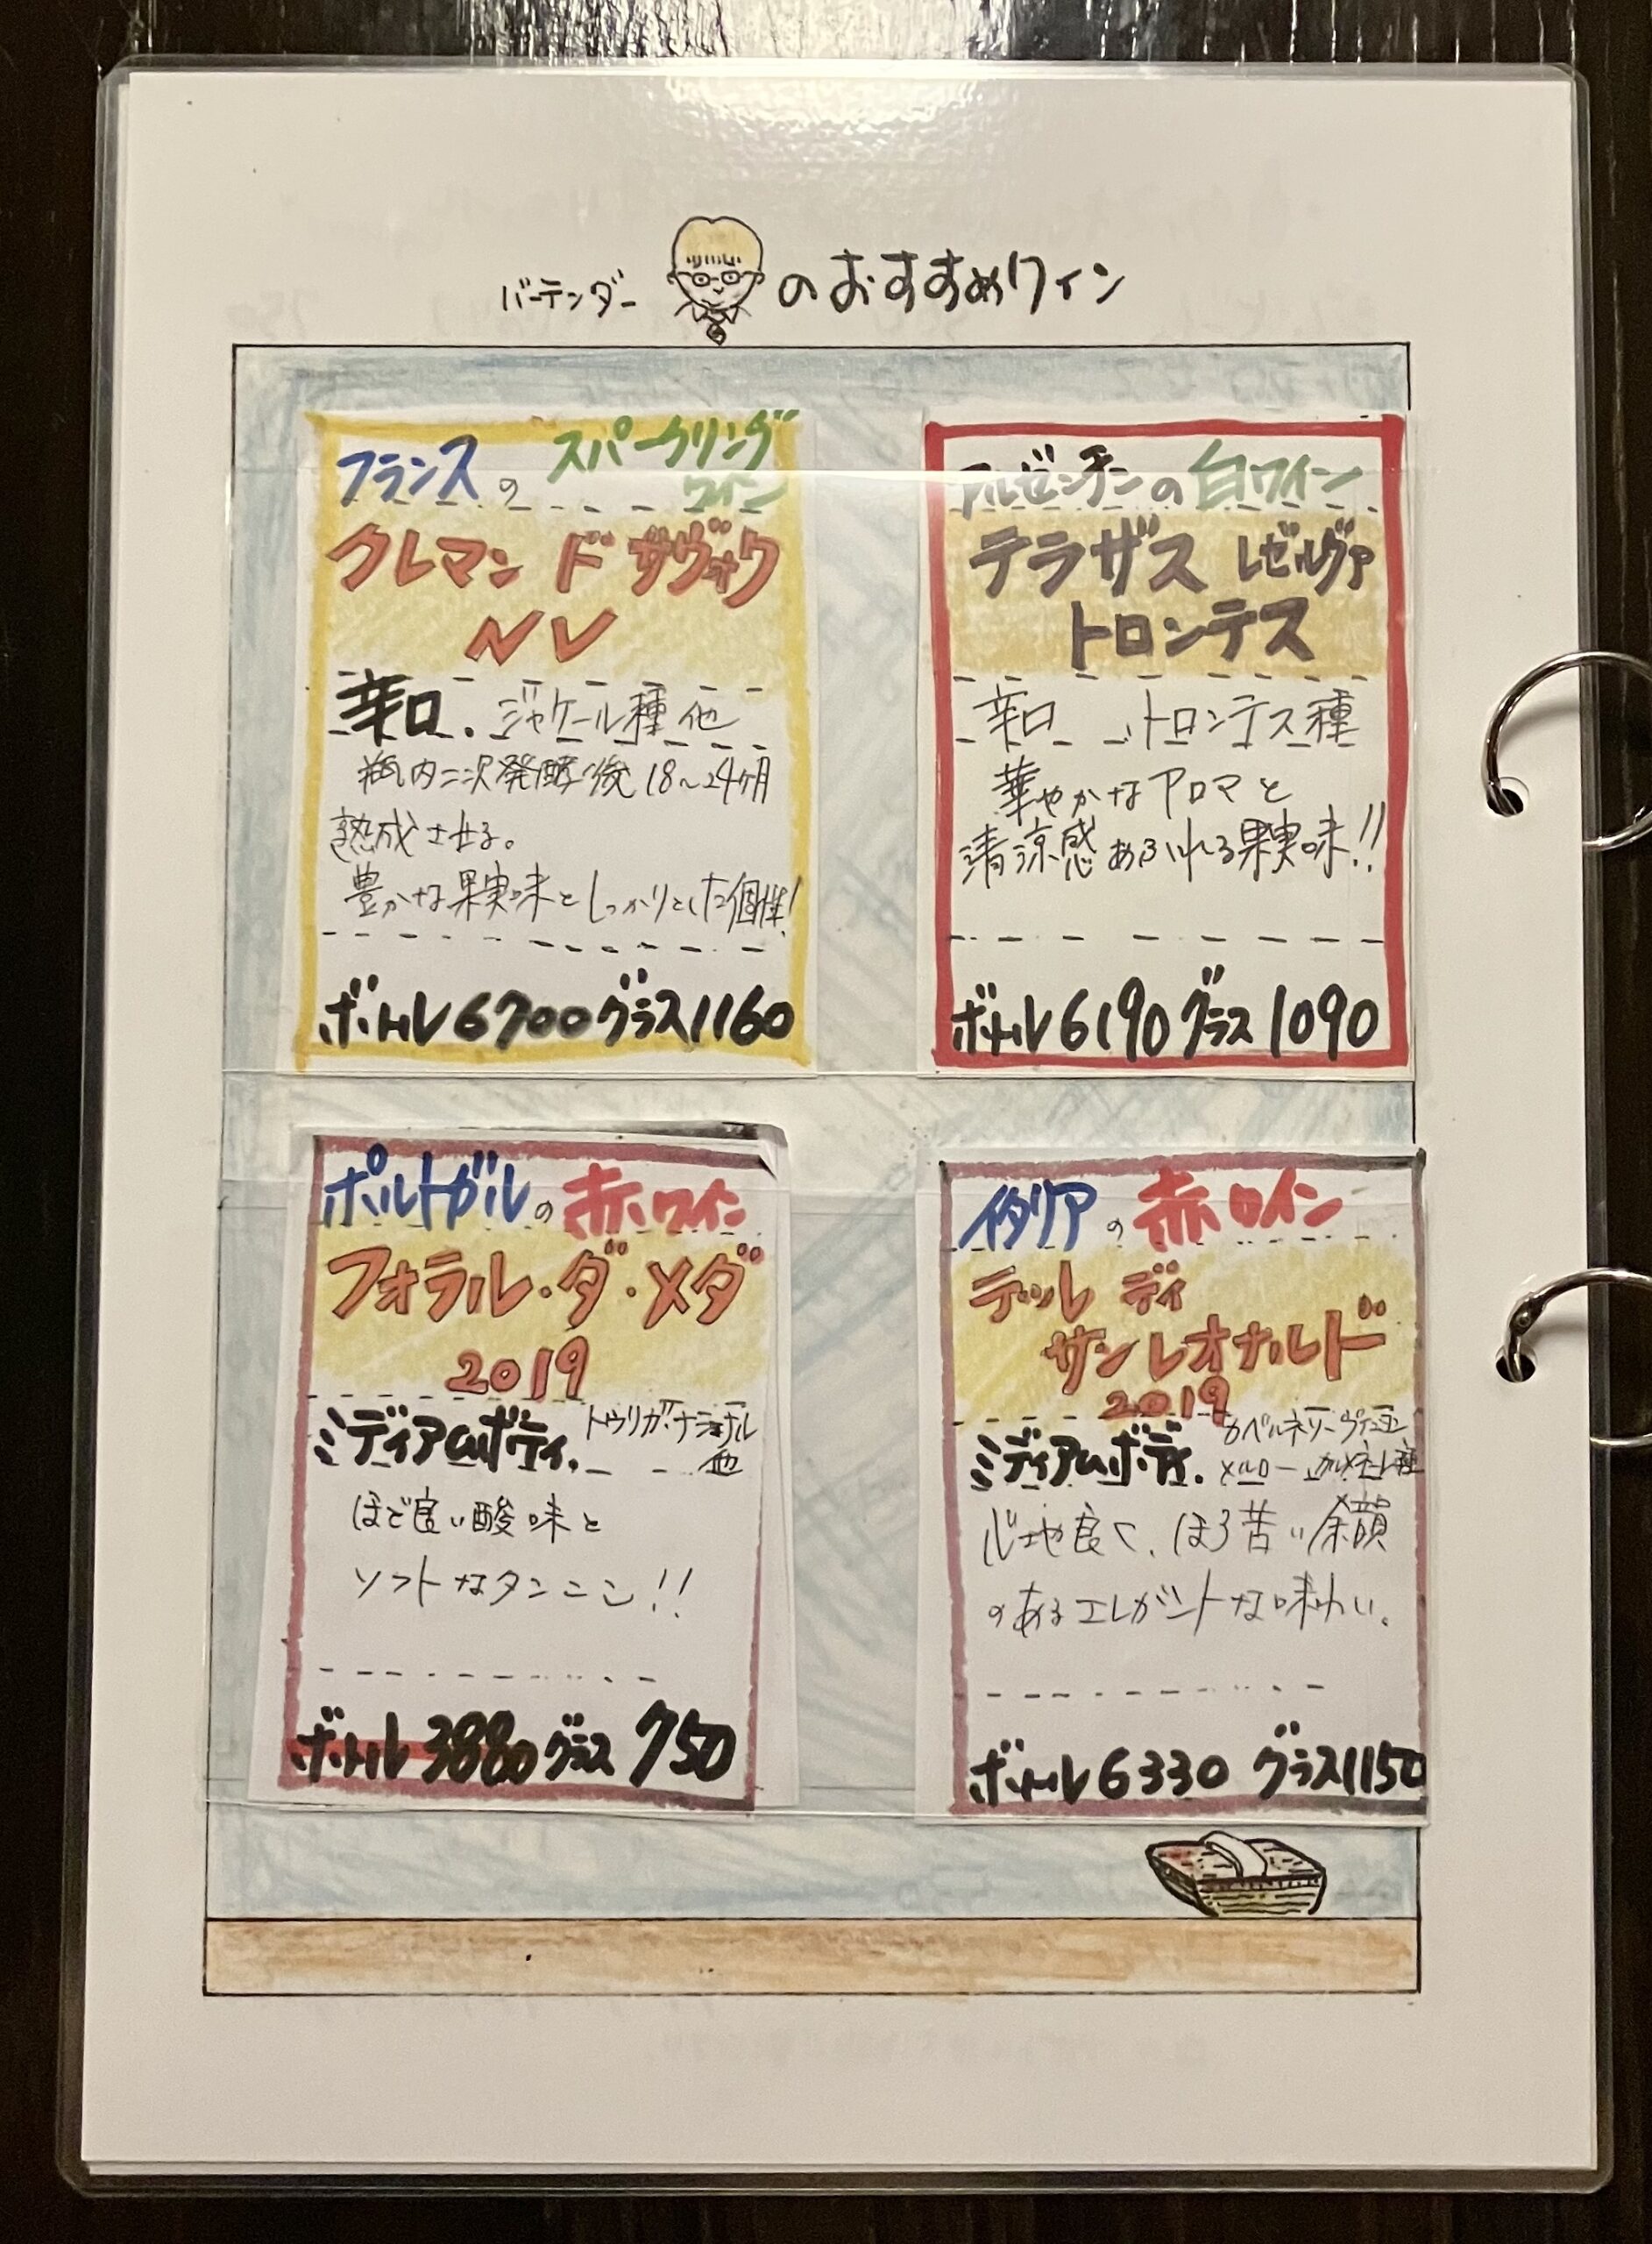 バーテンダー のおすすめワイン
フランスの スパークリング
ワイン
クレマン ド サヴォワ
NV
辛口. ジャケール種 他
瓶内二次発酵後18～24ヶ月
熟成させる。
豊かな果実味としっかりとした個性!
ボトル6700グラス1160
アルゼンチンの白ワイン
テラザス レゼルヴァ
トロンテス
辛口 、トロンテス種
華やかなアロマと
清涼感あふれる果実味!!
ボトル6190グラス1090
ポルトガルの赤ワイン
フォラル・ダ・メダ
2019
ミディアムボディ. トウリガ・ナショナル
他
ほど良い酸味と
ソフトなタンニン!!
ボトル3880グラス 750
イタリアの赤ワイン
テッレ ディ
サン レオナルド
2019
カベルネソーヴィニヨン
ミディアムボディ. メルロー、カルメネーレ種
心地良く、ほろ苦い余韻
のあるエレガントな味わい。
ボトル6330 グラス1150